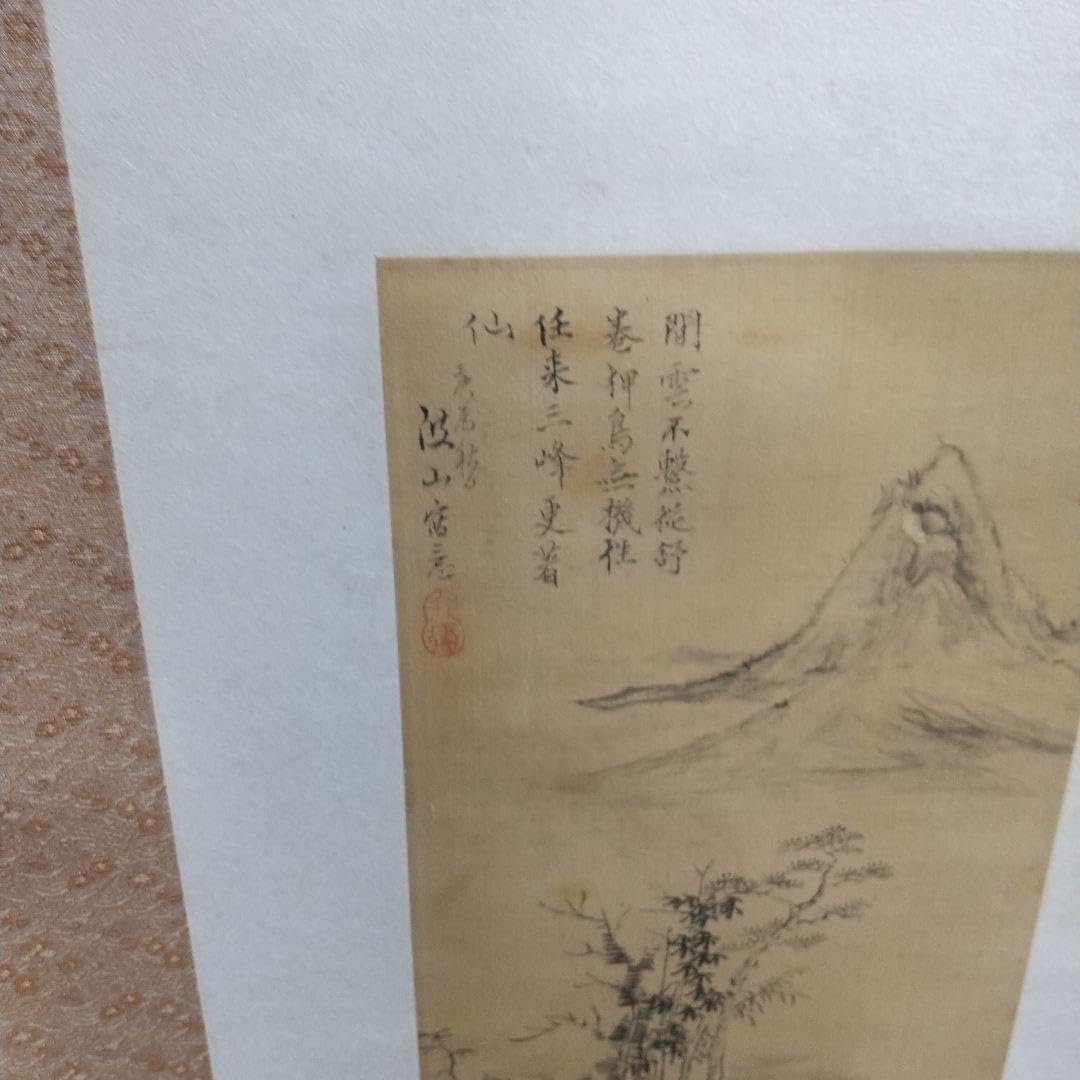 閒雲不繫從舒
卷押鳥無機性
任来三峰更著
仙
波山寫意